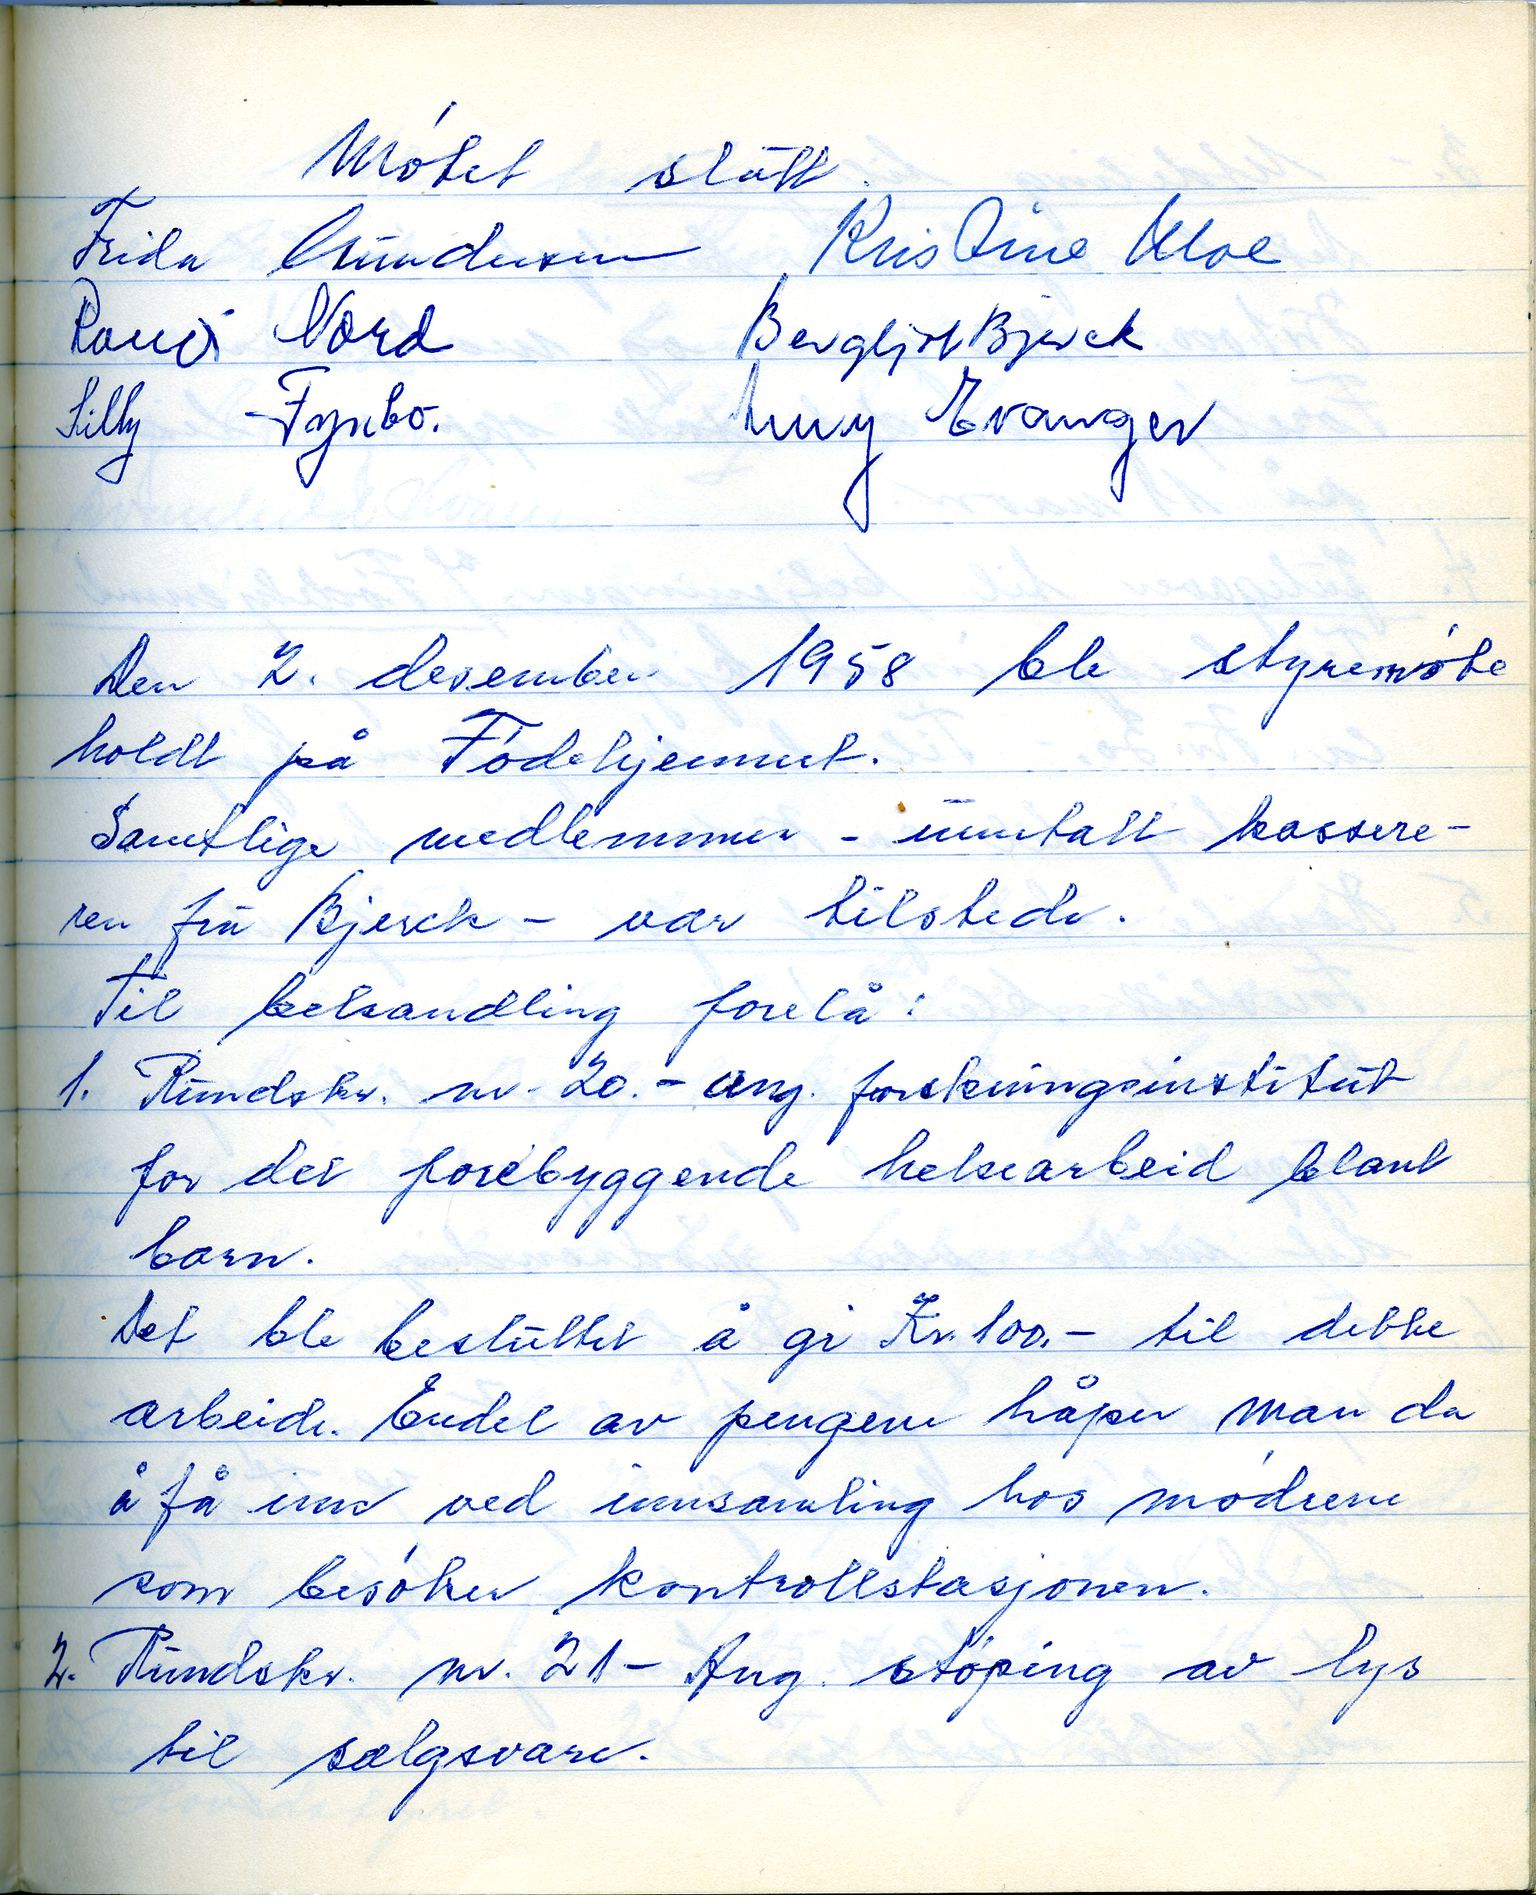 Møtet slutt.
Frida Gundersen Kristine Moe
Ranei Nord Bergljot Bjerck
Lilly Fynbo. Lucy Evanger
Den 2. desember 1958 ble styremøte
holdt på Fødehjemmet.
Samtlige medlemmer - unntatt kassere-
ren fru Bjerck - var tilstede.
Til behandling forelå:
1. Rundskr. nr. 20. - ang. forskningsinstitut
for det forebyggende helsearbeid blant
barn.
Det ble besluttet å gi Kr. 100.- til dette
arbeide. Endel av pengene håper man da
å få inn ved innsamling hos mødrene
som besøker kontrollstasjonen.
2. Rundskr. nr. 21 - Ang. støping av lys
til salgsvare.